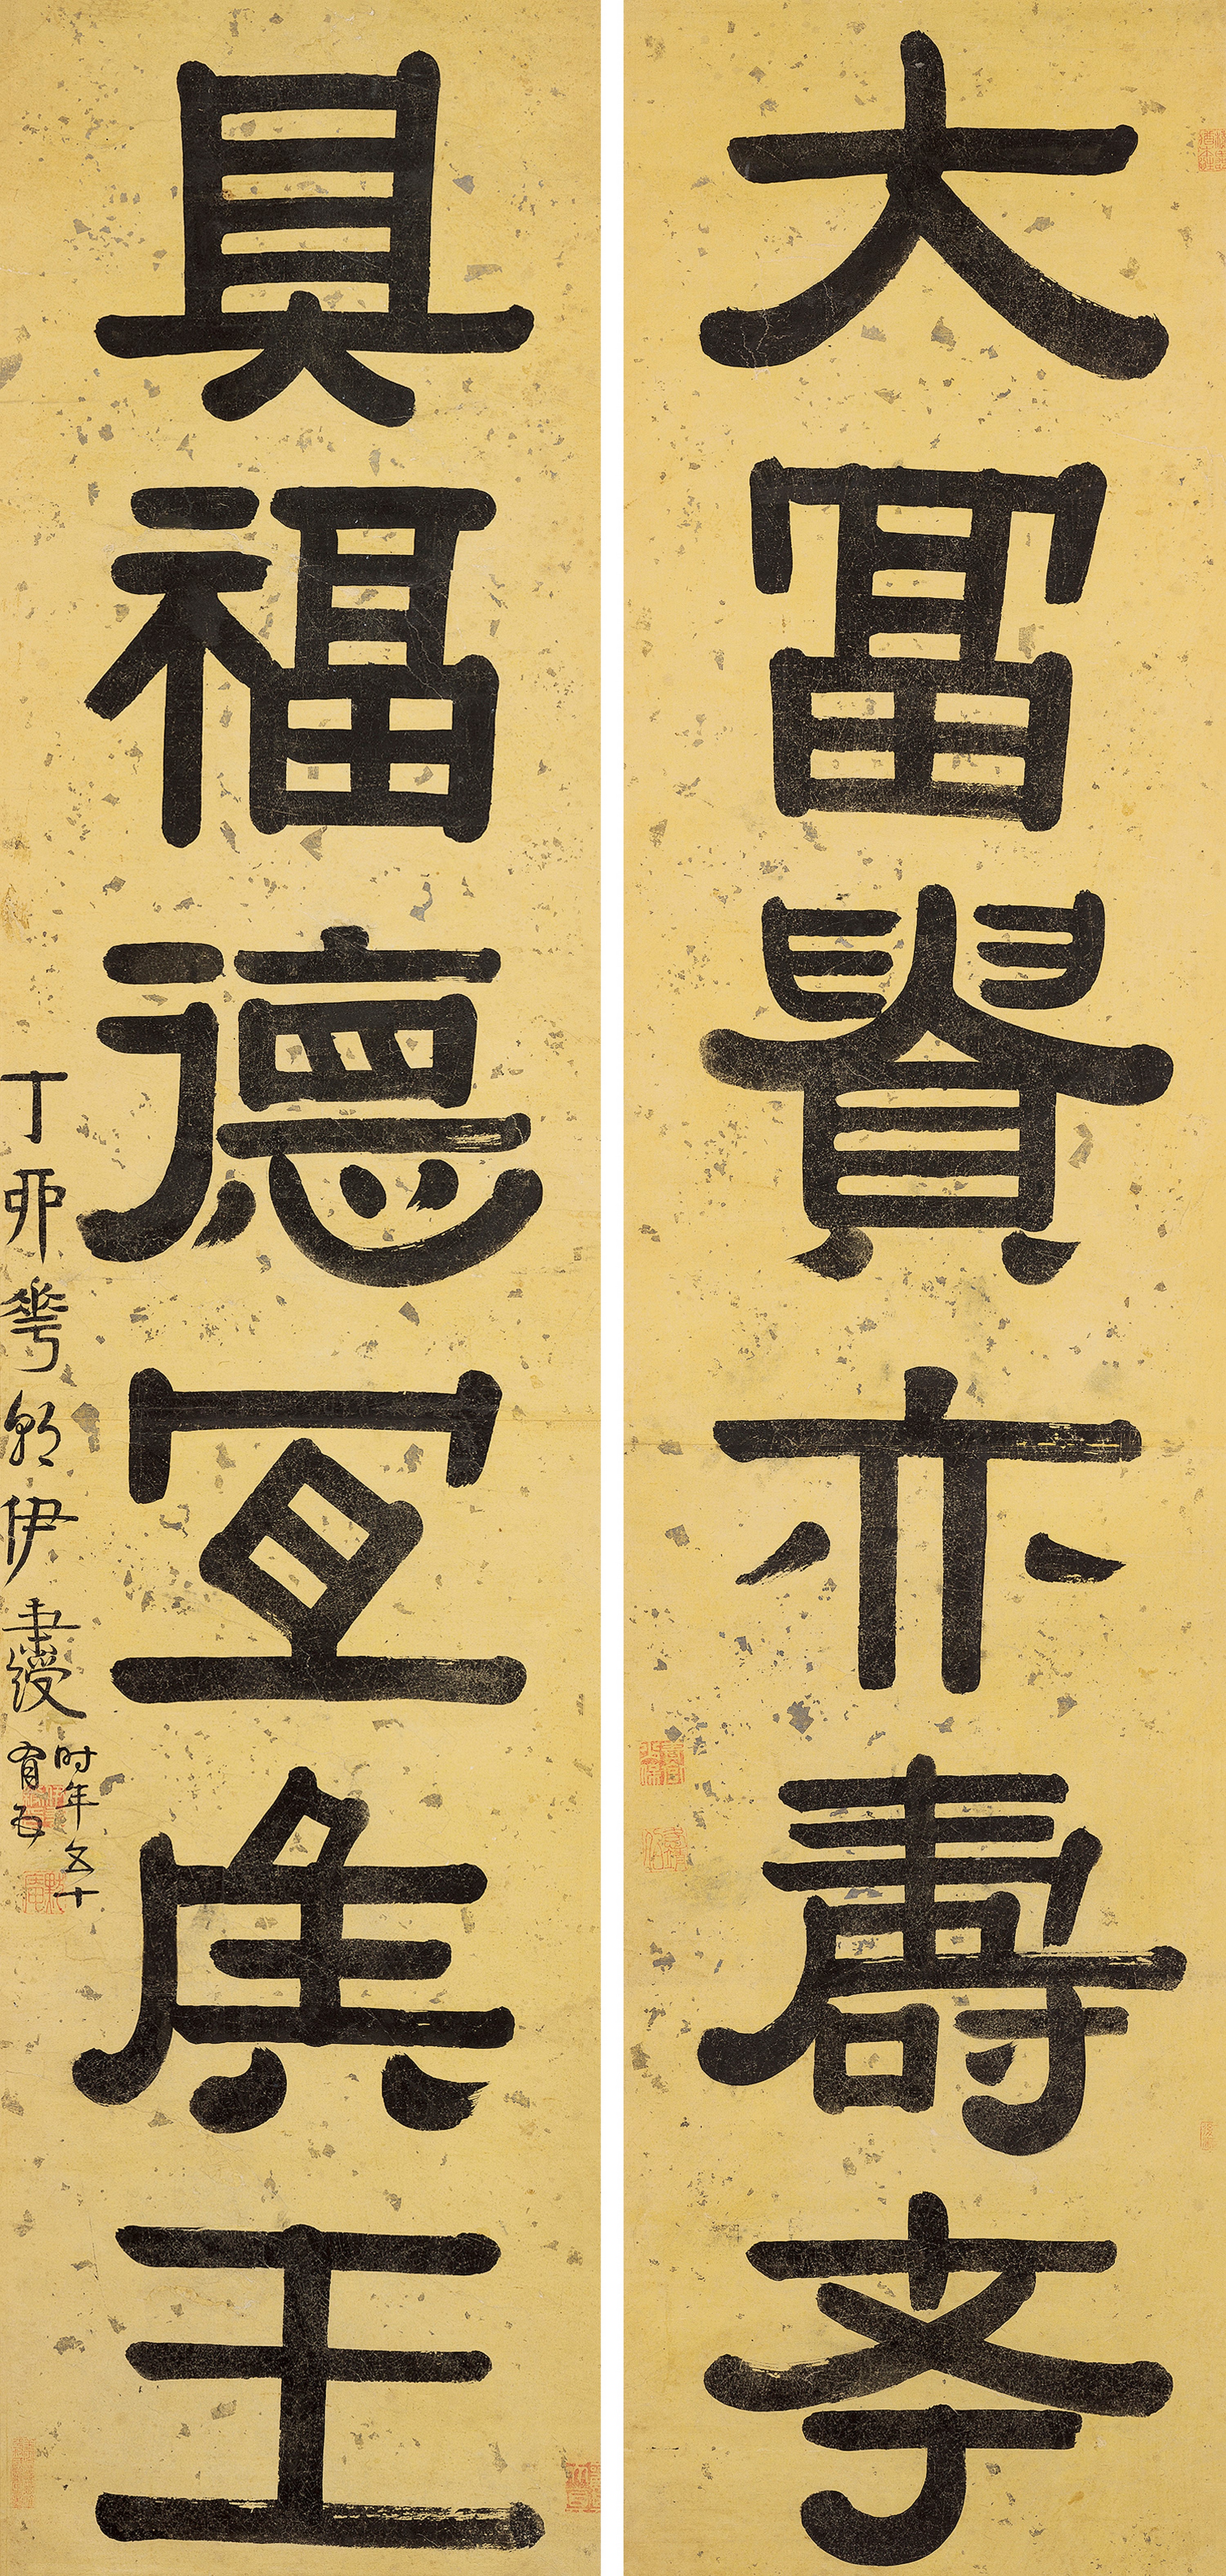 大富貴亦壽考
具福德宜侯王
丁卯華朝伊秉綬
时年五十
有四